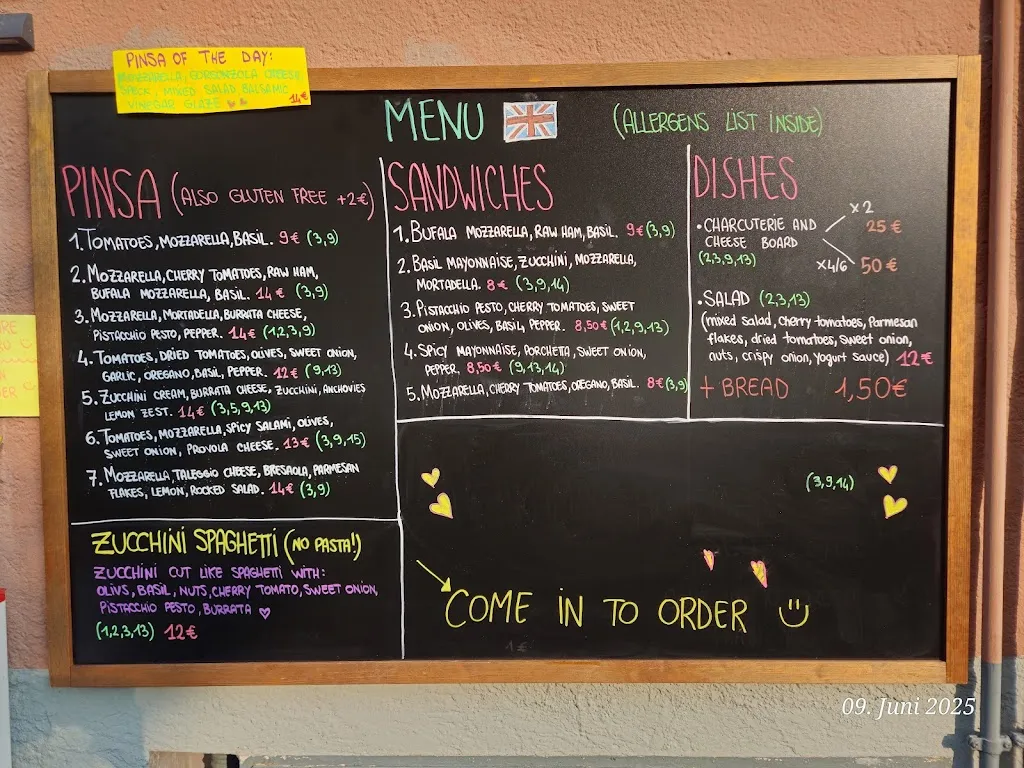 PINSA OF THE DAY:
MOZZARELLA, GORGONZOLA CHEESE
SPECK, MIXED SALAD, BALSAMIC
VINEGAR GLAZE
14€
MENU
(ALLERGENS LIST INSIDE)
PINSA (ALSO GLUTEN FREE +2€)
1. TOMATOES, MOZZARELLA, BASIL. 9€ (3,9)
2. MOZZARELLA, CHERRY TOMATOES, RAW HAM,
BUFALA MOZZARELLA, BASIL. 14€ (3,9)
3. MOZZARELLA, MORTADELLA, BURRATA CHEESE,
PISTACCHIO PESTO, PEPPER. 14€ (1,2,3,9)
4. TOMATOES, DRIED TOMATOES, OLIVES, SWEET ONION,
GARLIC, OREGANO, BASIL, PEPPER. 12€ (9,13)
5. ZUCCHINI CREAM, BURRATA CHEESE, ZUCCHINI, ANCHOVIES
LEMON ZEST. 14€ (3,5,9,13)
6. TOMATOES, MOZZARELLA, SPICY SALAMI, OLIVES,
SWEET ONION, PROVOLA CHEESE. 13€ (3,9,15)
7. MOZZARELLA, TALEGGIO CHEESE, BRESAOLA, PARMESAN
FLAKES, LEMON, ROCKED SALAD. 14€ (3,9)
ZUCCHINI SPAGHETTI (NO PASTA!)
ZUCCHINI CUT LIKE SPAGHETTI WITH:
OLIVS, BASIL, NUTS, CHERRY TOMATO, SWEET ONION,
PISTACCHIO PESTO, BURRATA ♡
(1,2,3,13) 12€
SANDWICHES
1. BUFALA MOZZARELLA, RAW HAM, BASIL. 9€ (3,9)
2. BASIL MAYONNAISE, ZUCCHINI, MOZZARELLA,
MORTADELLA. 8€ (3,9,14)
3. PISTACCHIO PESTO, CHERRY TOMATOES, SWEET
ONION, OLIVES, BASIL, PEPPER. 8,50€ (1,2,9,13)
4. SPICY MAYONNAISE, PORCHETTA, SWEET ONION,
PEPPER. 8,50€ (9,13,14)
5. MOZZARELLA, CHERRY TOMATOES, OREGANO, BASIL. 8€ (3,9)
DISHES
• CHARCUTERIE AND
CHEESE BOARD
(2,3,9,13)
X2
25€
X4/6
50€
• SALAD (2,3,13)
(mixed salad, cherry tomatoes, Parmesan
flakes, dried tomatoes, sweet onion,
nuts, crispy onion, yogurt sauce) 12€
+ BREAD 1,50€
(3,9,14)
COME IN TO ORDER
09. Juni 2025